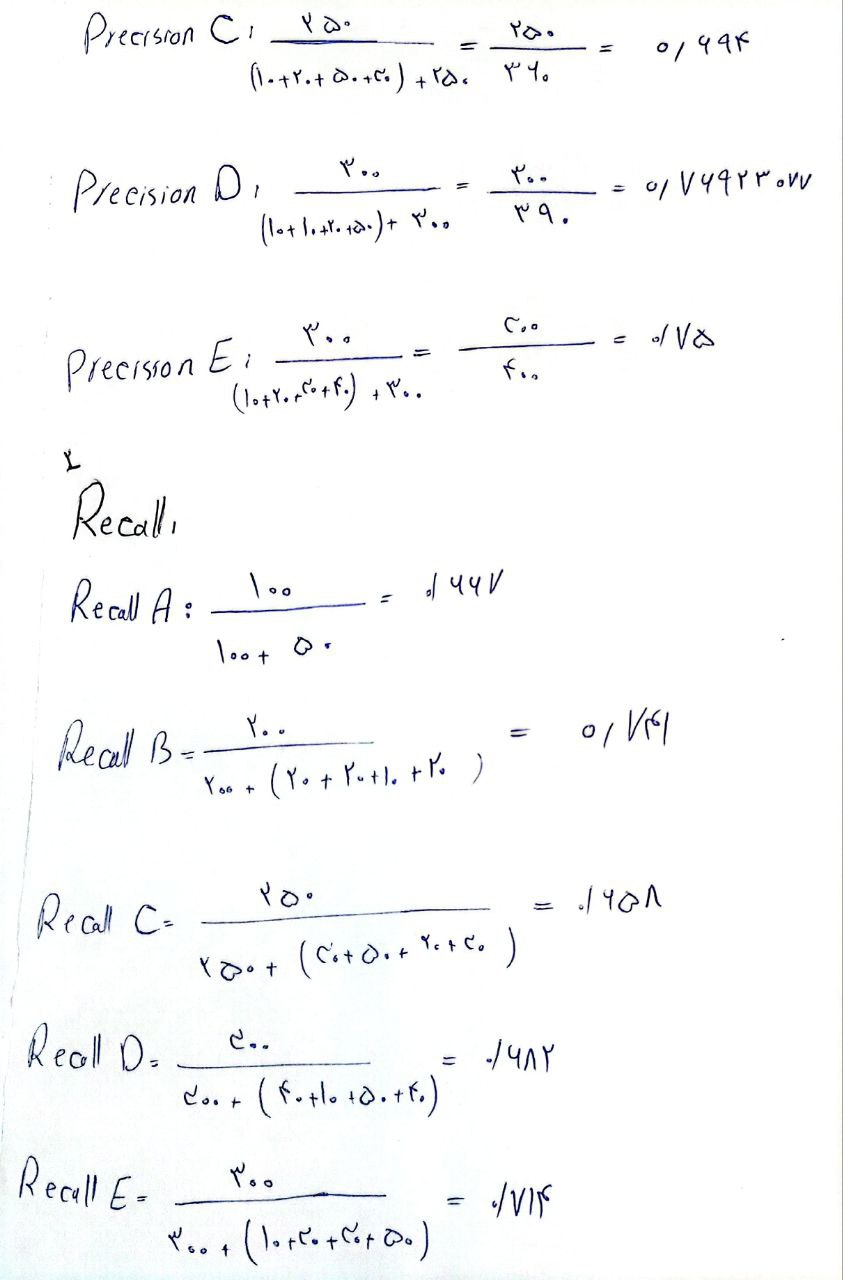 Precision C: ۲۵۰ / (۱۰+۲۰+۵۰+۳۰) + ۲۵۰ = ۲۵۰ / ۳۶۰ = ۰/۶۹۴
Precision D: ۳۰۰ / (۱۰+۱۰+۲۰+۵۰) + ۳۰۰ = ۳۰۰ / ۳۹۰ = ۰/۷۶۹۲۳۰۷۷
Precision E: ۳۰۰ / (۱۰+۲۰+۳۰+۴۰) + ۳۰۰ = ۳۰۰ / ۴۰۰ = ۰/۷۵
Recall:
Recall A: ۱۰۰ / ۱۰۰ + ۵۰ = ۰/۶۶۷
Recall B = ۲۰۰ / ۲۰۰ + (۲۰ + ۲۰ + ۱۰ + ۲۰) = ۰/۷۴۱
Recall C = ۲۵۰ / ۲۵۰ + (۳۰ + ۵۰ + ۲۰ + ۳۰) = ۰/۶۵۸
Recall D = ۳۰۰ / ۳۰۰ + (۴۰ + ۱۰ + ۵۰ + ۴۰) = ۰/۶۸۲
Recall E = ۳۰۰ / ۳۰۰ + (۱۰ + ۳۰ + ۳۰ + ۵۰) = ۰/۷۱۴